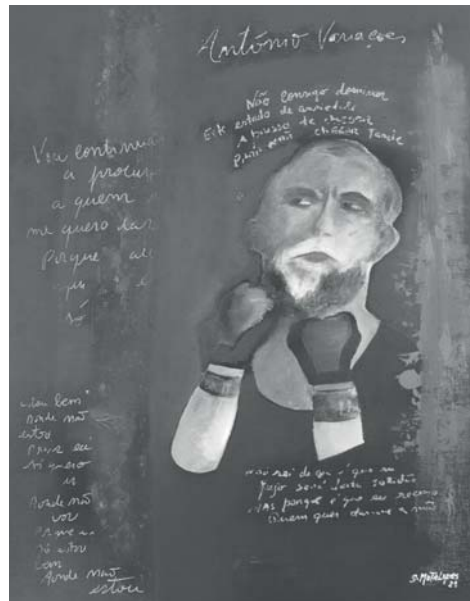 António Variações
Não consigo dominar
Este estado de ansiedade
A pressa de chegar
P'ra não chegar tarde
Vou continuar
a procurar
a quem
me quero dar
Porque até
aqui eu
só
bem
Aonde não
estou
Porque eu
só quero
ir
Aonde não
vou
Porque eu
só estou
bem
Aonde não
estou
não sei de que é que eu
fujo será desta solidão
MAS porque é que eu recuso
Quem quer dar-me a mão
21